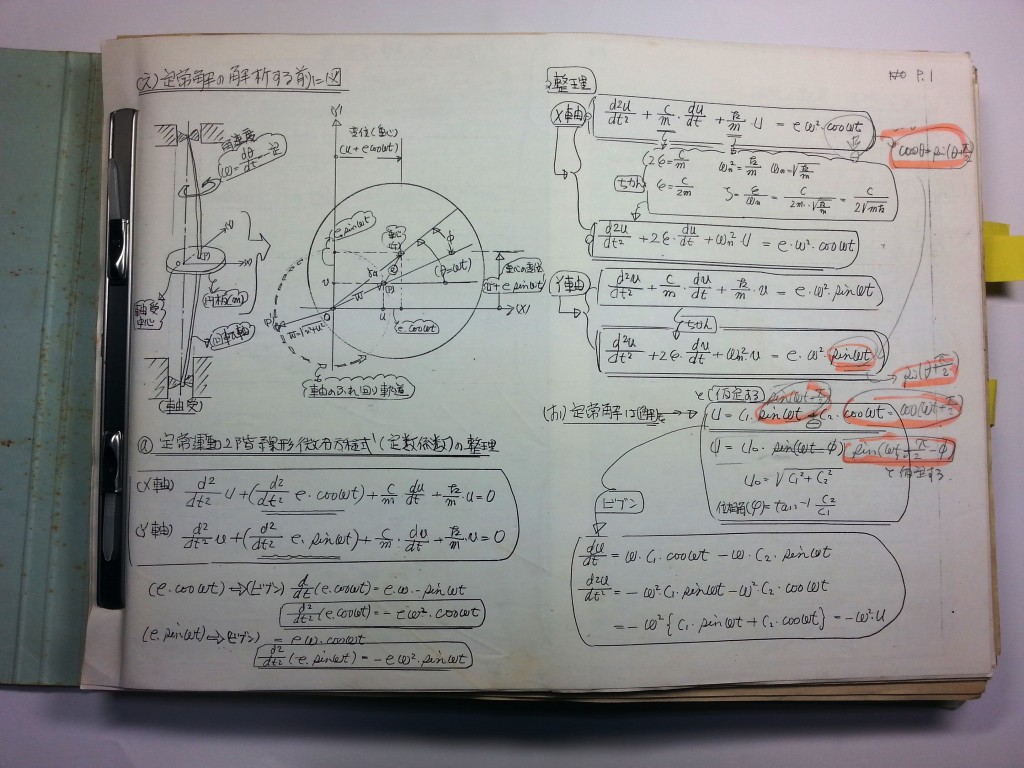 (え) 定常解の解析する前に図
角速度
ω = dθ/dt
円板(m)
軸受中心
回転軸
(軸受)
変位(重心)
(u + e cosωt)
e sinωt
重心
(θ=ωt)
重心の変位
v + e sinωt
e cosωt
車軸のふれ回り軌道
定常運動2階線形微分方程式(定数係数)の整理
(X軸) d²/dt² u + (d²/dt² e·cosωt) + c/m du/dt + k/m·u = 0
(Y軸) d²/dt² v + (d²/dt² e·sinωt) + c/m·dv/dt + k/m·v = 0
(e·cosωt) ⇒ (ビブン) d/dt (e·cosωt) = e·ω·-sinωt
d²/dt² (e·cosωt) = -eω²·cosωt
(e·sinωt) ⇒ ビブン) = eω·cosωt
d²/dt² (e·sinωt) = -eω²·sinωt
No P.1
整理
X軸
d²u/dt² + c/m·du/dt + k/m·u = eω²·cosωt
2ε = c/m ωn² = k/m ωn = √k/m
ちかん
ε = c/2m ζ = ε/ωn = c/2m·√k/m = c/2√mk
d²u/dt² + 2ε·du/dt + ωn²·u = e·ω²·cosωt
Y軸
d²v/dt² + c/m·dv/dt + k/m·v = e·ω²·sinωt
ちかん
d²v/dt² + 2ε·dv/dt + ωn²·v = e·ω²·sinωt
と仮定する
(お) 定常解は
u = C₁·sinωt + C₂·cosωt
u = u₀·sin(ωt-φ)
と仮定する
u₀ = √C₁²+C₂²
位相角(φ) = tan⁻¹ C₂/C₁
ビブン
du/dt = ω·C₁·cosωt - ω·C₂·sinωt
d²u/dt² = -ω²C₁·sinωt - ω²·C₂·cosωt
= -ω²{C₁·sinωt + C₂·cosωt} = -ω²·u